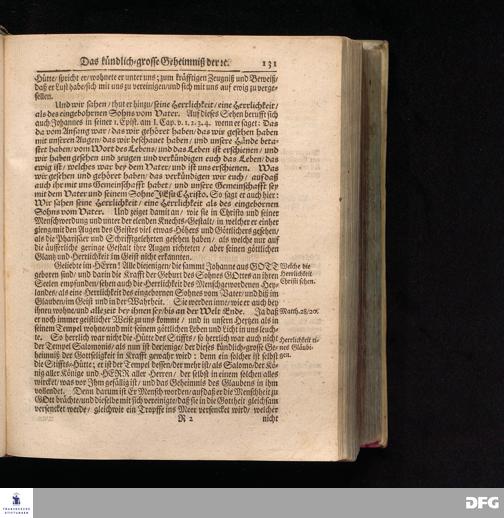 Das kündlich-grosse Geheimniß der ꝛc. 131
Hütte/ spricht er/ wohnete er unter uns; zum kräfftigen Zeugniß und Beweiß/
daß er Lust habe/ sich mit uns zu vereinigen/ und sich mit uns auf ewig zu verge-
sellen.
Und wir sahen/ thut er hinzu/ seine Herrlichkeit/ eine Herrlichkeit/
als des eingebohrnen Sohns vom Vater. Auf dieses Sehen berufft sich
auch Johannes in seiner 1. Epist. am 1. Cap. v. 1. 2. 3. 4. wenn er saget: Das
da vom Anfang war/ das wir gehöret haben/ das wir gesehen haben
mit unseren Augen/ das wir beschauet haben/ und unsere Hände beta-
stet haben/ vom Wort des Lebens/ und das Leben ist erschienen/ und
wir haben gesehen und zeugen und verkündigen euch das Leben/ das
ewig ist/ welches war bey dem Vater/ und ist uns erschienen. Was
wir gesehen und gehöret haben/ das verkündigen wir euch/ aufdaß
auch ihr mit uns Gemeinschafft habet/ und unsere Gemeinschafft sey
mit dem Vater und seinem Sohne JEsu Christo. So sagt er auch hier:
Wir sahen seine Herrlichkeit/ eine Herrlichkeit als des eingebornen
Sohns vom Vater. Und zeiget damit an/ wie sie in Christo und seiner
Menschwerdung und unter der elenden Knechts-Gestalt/ in welcher er einher
gieng/ mit den Augen des Geistes viel etwas Höhers und Göttlichers gesehen/
als die Pharisäer und Schrifftgelehrten gesehen haben/ als welche nur auf
die äusserliche geringe Gestalt ihre Augen richteten/ aber seinen göttlichen
Glantz und Herrlichkeit im Geist nicht erkannten.
Geliebte im HErrn! Alle diejenigen/ die sammt Johanne aus GOTT
geboren sind/ und darin die Krafft der Geburt des Sohnes GOttes an ihren
Seelen empfunden/ sehen auch die Herrlichkeit des Menschgewordenen Hey-
landes/ als eine Herrlichkeit des eingebornen Sohnes vom Vater/ und diß im
Glauben/ im Geist und in der Wahrheit. Sie werden inne/ wie er auch bey
ihnen wohne/ und alle zeit bey ihnen sey biß an der Welt Ende. Ja daß
er noch immer geistlicher Weise zu uns komme/ und in unsern Hertzen als in
seinem Tempel wohne/ und mit seinem göttlichen Leben und Licht in uns leuch-
te. So herrlich war nicht die Hütte des Stiffts/ so herrlich war auch nicht
der Tempel Salomonis/ als nun ist derjenige/ der dieses kündlich-grosse Ge-
heimniß der Gottseligkeit in Krafft gewahr wird: denn ein solcher ist selbst
die Stiffts-Hütte; er ist der Tempel dessen/ der mehr ist/ als Salomo/ der Kö-
nig aller Könige und HERR aller Herren/ der selbst in einem solchen alles
wircket/ was vor Jhm gefällig ist/ und das Geheimnis des Glaubens in ihm
vollendet. Denn darum ist Er Mensch worden/ aufdaß er die Menschheit zu
GOtt brächte/ und dieselbe mit sich vereinigte/ daß sie in die Gottheit gleichsam
versencket werde/ gleichwie ein Tropffe ins Meer versencket wird/ welcher
R 2 nicht
Welche die
Herrlichkeit
Christi sehen.
Matth. 28/20.
Herrlichkeit ei-
nes Gläubi-
gen.
FRANCKESCHE
STIFTUNGEN
DFG